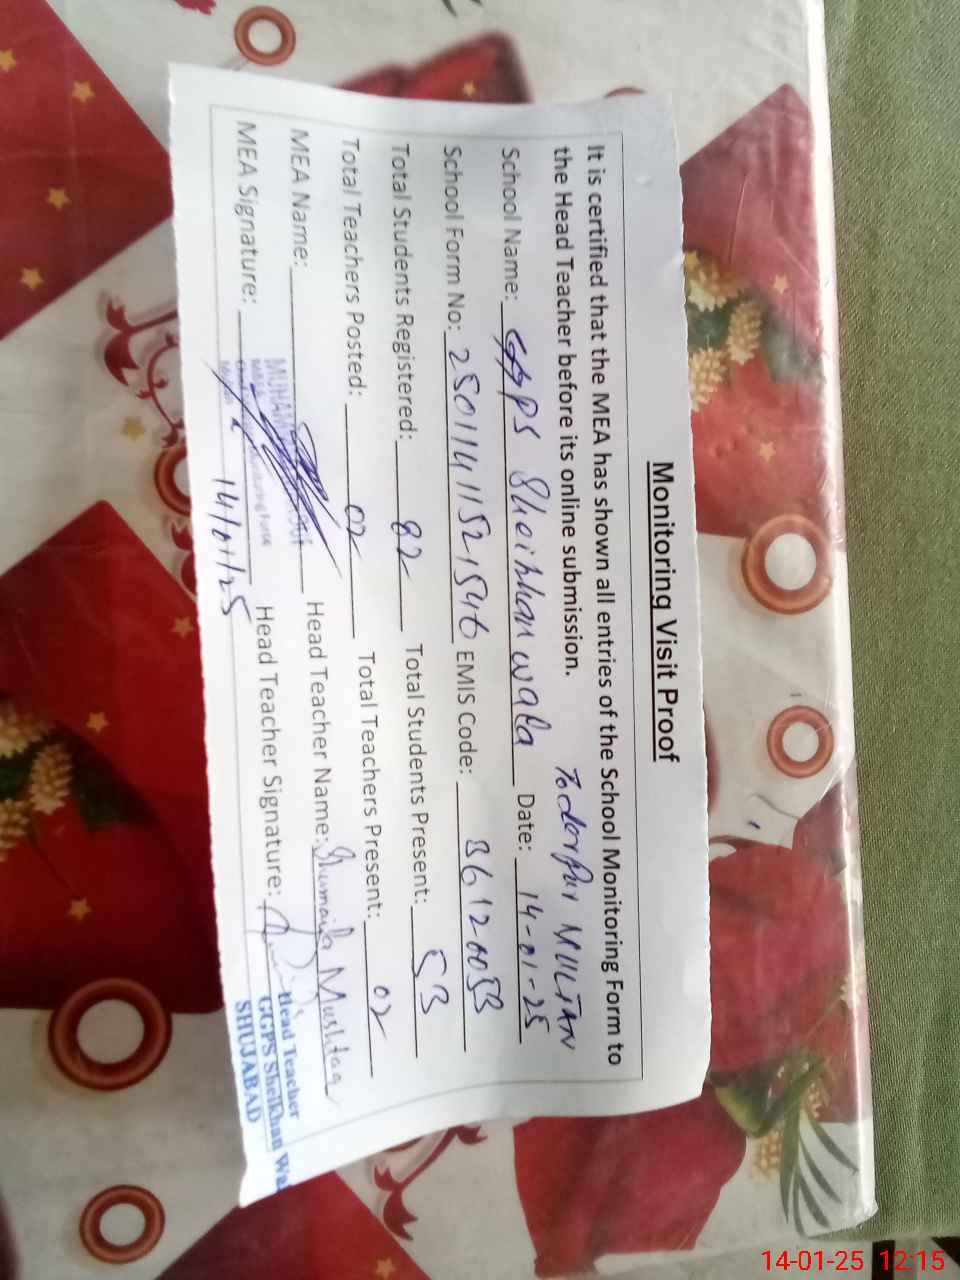 Monitoring Visit Proof
It is certified that the MEA has shown all entries of the School Monitoring Form to
the Head Teacher before its online submission. Todorpur MULTAN
School Name: GGPS Sheikhan wala Date: 14-01-25
School Form No: 25011411521546 EMIS Code:
Total Students Registered: 82 Total Students Present: 53
Total Teachers Posted: 02 Total Teachers Present: 02
MEA Name: Head Teacher Name: Shumaila Mushtaq
MEA Signature: 14/01/25 Head Teacher Signature:
Head Teacher
GGPS Sheikhan Wa
SHUJABAD
14-01-25 12:15